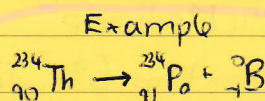 Example
²³⁴₉₀Th → ²³⁴₉₁Pa + ⁰₋₁B